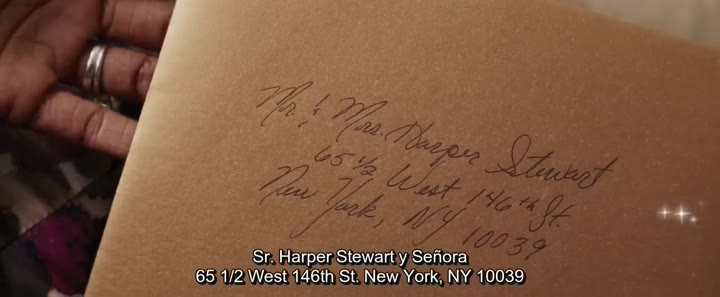 Mr. & Mrs. Harper Stewart
65 1/2 West 146th St.
New York, NY 10039
Sr. Harper Stewart y Señora
65 1/2 West 146th St. New York, NY 10039